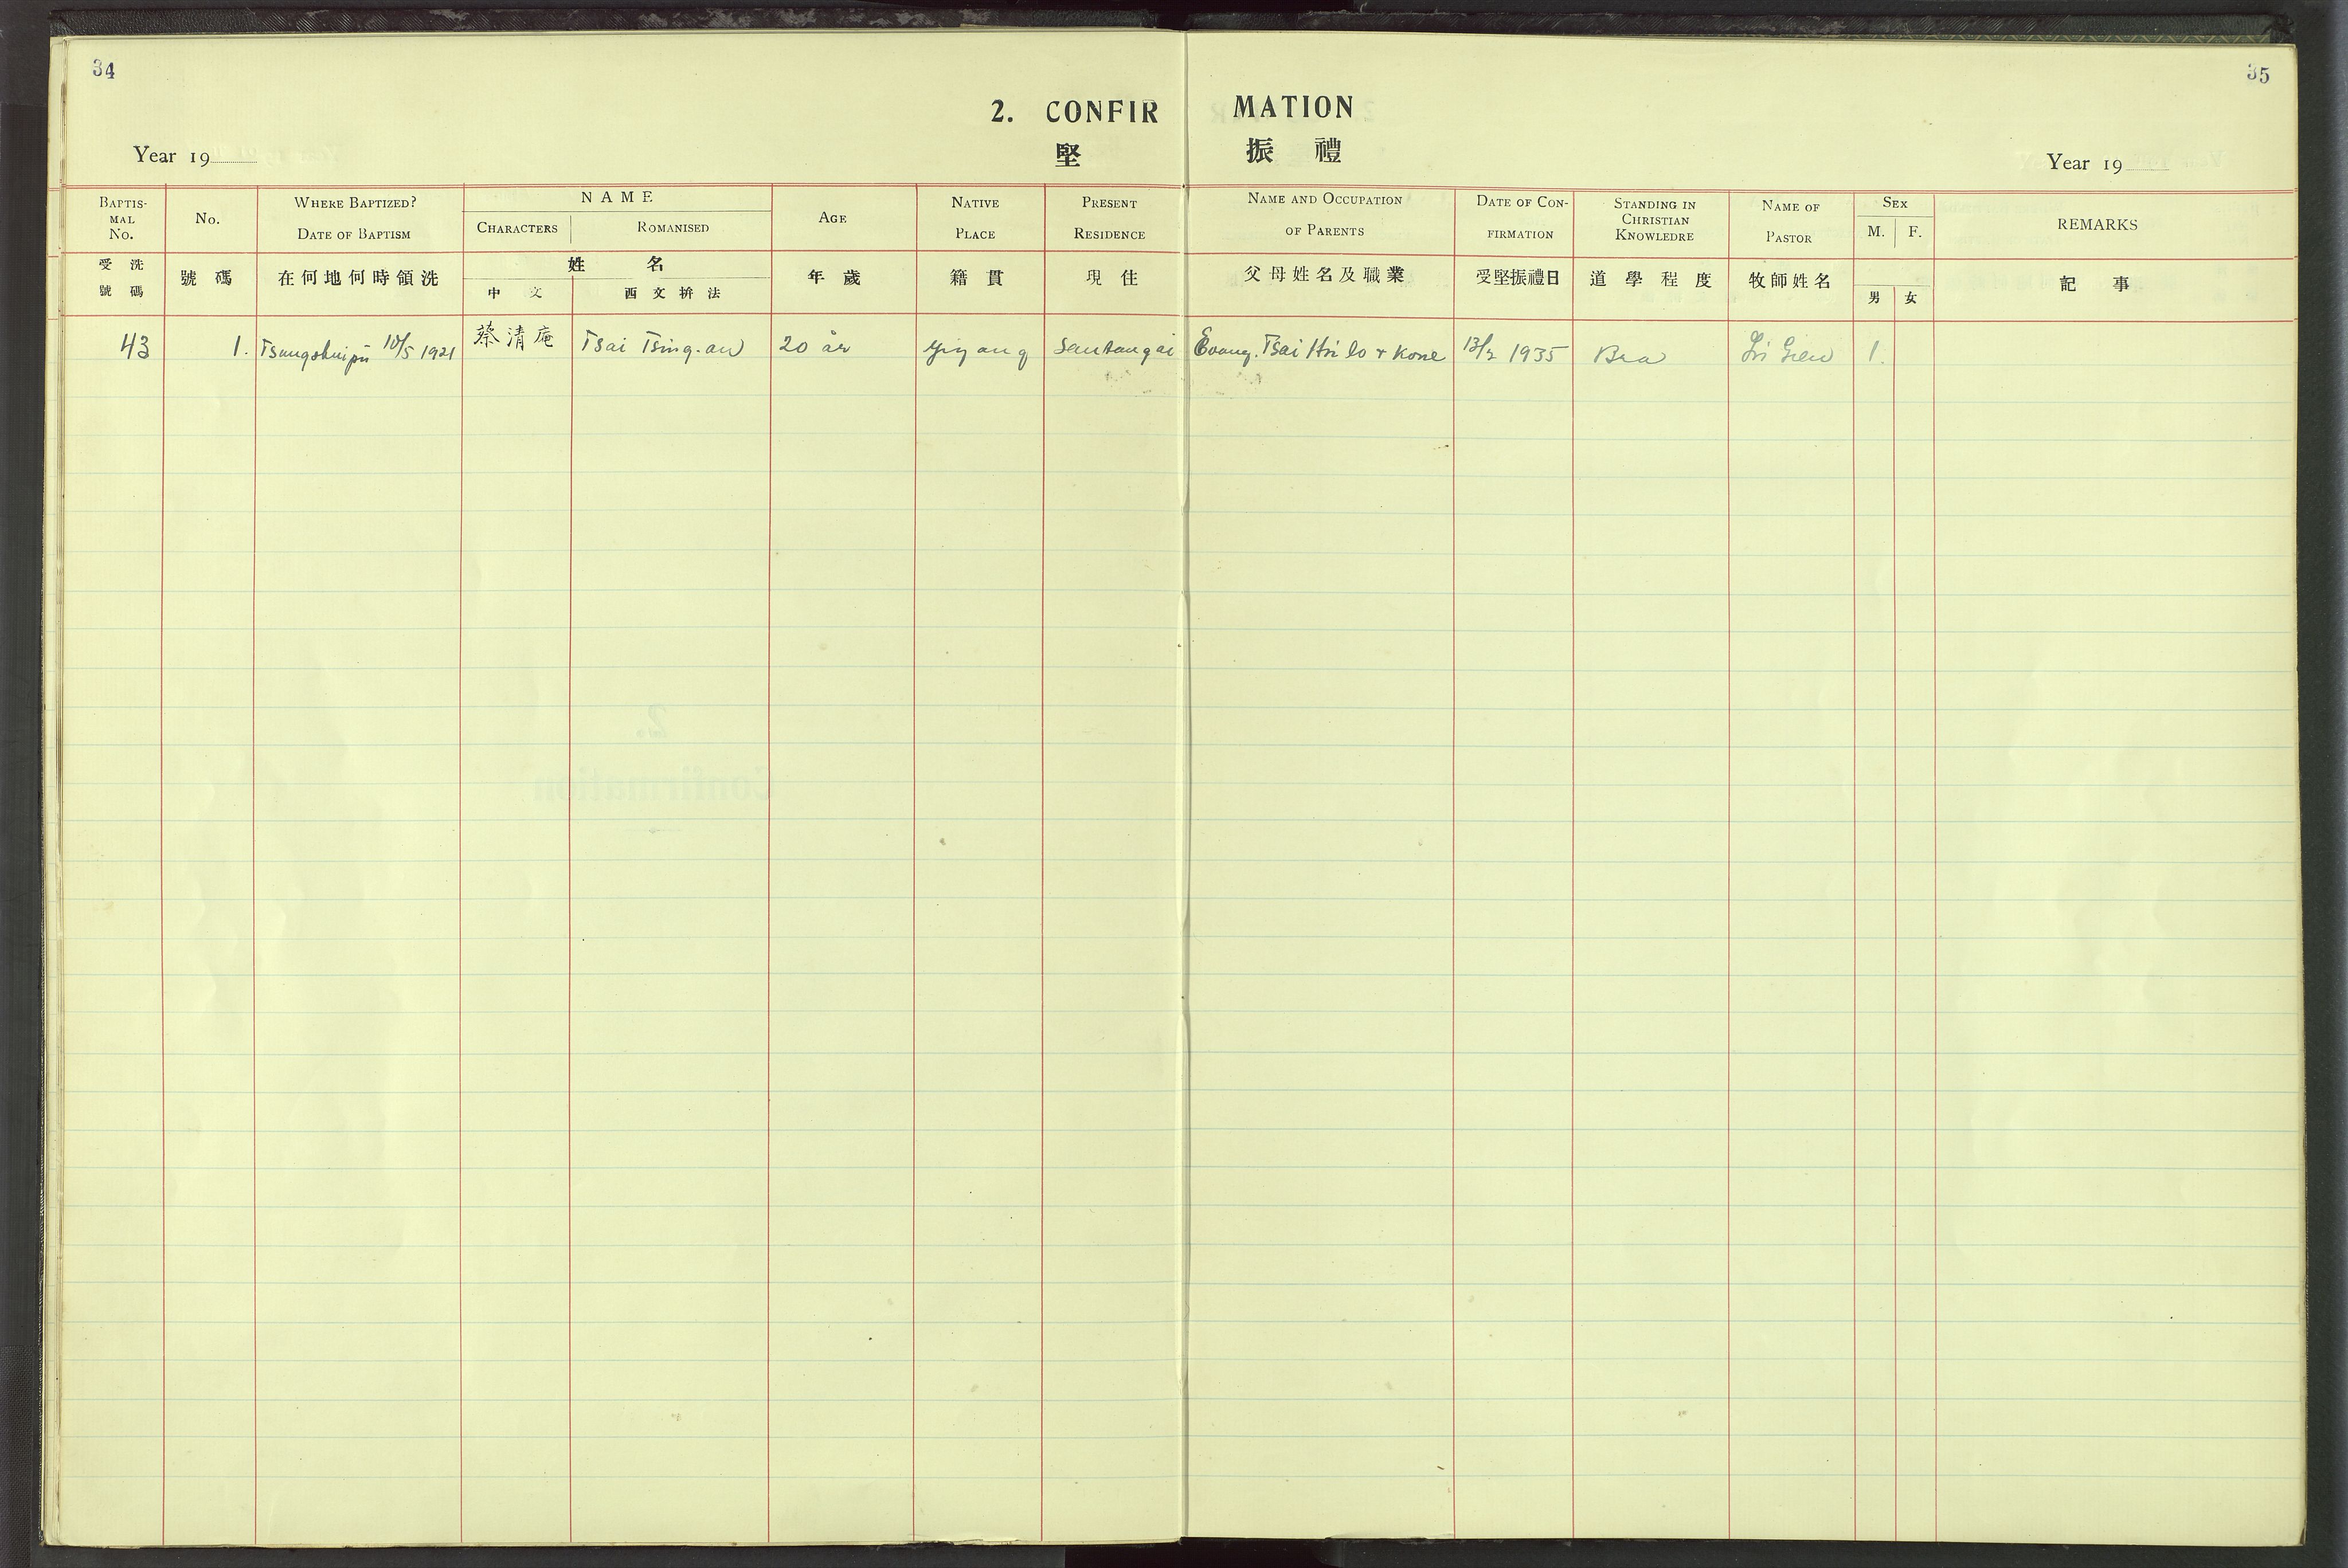 34
35
2. CONFIRMATION
堅振禮
Year 19
Year 19
BAPTIS-MAL No.
No.
WHERE BAPTIZED? DATE OF BAPTISM
NAME
CHARACTERS
ROMANISED
AGE
NATIVE PLACE
PRESENT RESIDENCE
NAME AND OCCUPATION OF PARENTS
DATE OF CON-FIRMATION
STANDING IN CHRISTIAN KNOWLEDRE
NAME OF PASTOR
SEX
M.
F.
REMARKS
受洗號碼
號碼
在何地何時領洗
姓名
中文
西文拚法
年歲
籍貫
現住
父母姓名及職業
受堅振禮日
道學程度
牧師姓名
男
女
記事
43 1. Tsungshuipū 10/5 1921 蔡清庵 Tsai Tsing-an 20 år Yiyang Santangai Evang. Tsai Hsi lo + Kone 13/2 1935 Bra 1.